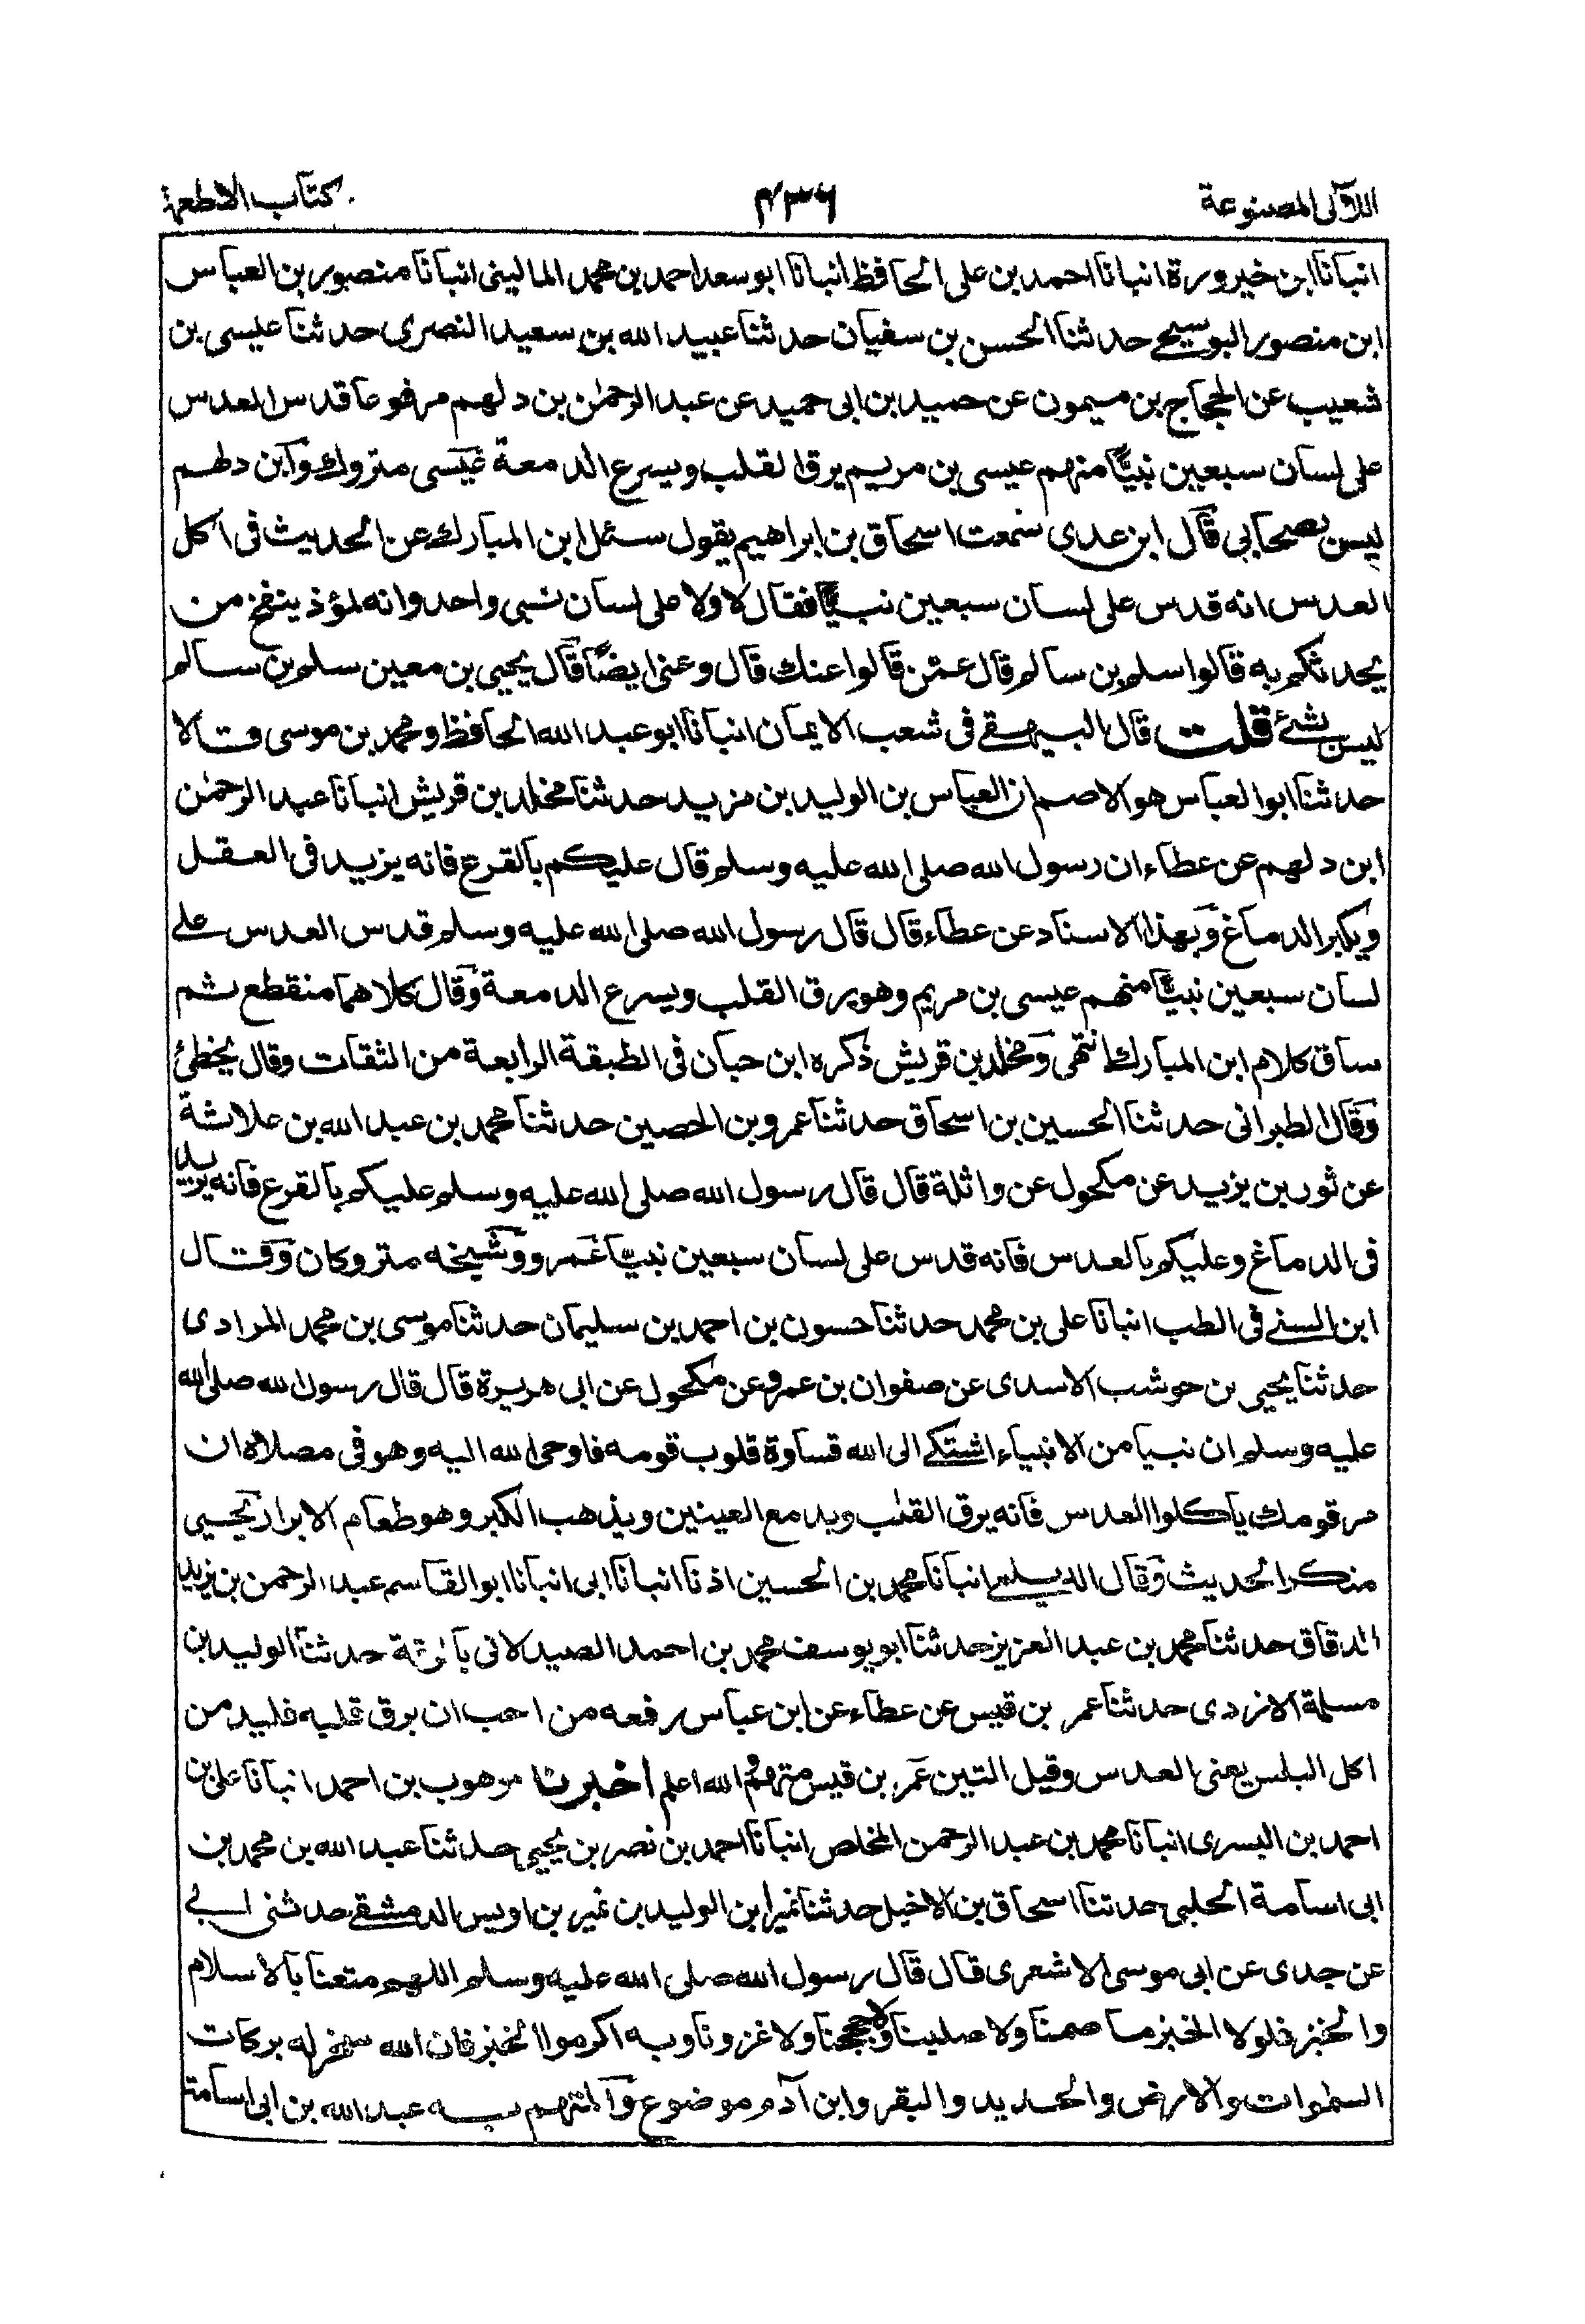 اللآلى المصنوعة
۴۳۶
كتاب الاطعمة
انبأنا ابن خيرورة انبانا احمد بن على الحافظ انبأنا ابو سعد احمد بن محمد المالينى انبأنا منصور بن العباس
ابن منصور البوسيحے حدثنا الحسن بن سفيان حدثنا عبيد الله بن سعيد النصرى حدثنا عيسى بن
شعيب عن الحجاج بن ميمون عن حميد بن ابى حميد عن عبد الرحمٰن بن دلهم مرفوعا قدس العدس
على لسان سبعين نبيًّا منهم عيسى بن مريم يرق القلب ويسرع الدمعة عيسى متروك وابن دلهم
ليس بصحابي قال ابن عدى سمعت اسحاق بن ابراهيم يقول سئل ابن المبارك عن الحديث فى اكل
العدس انه قدس على لسان سبعين نبيًّا فقال لا ولا على لسان نبى واحد وانه لمؤذ ينفخ من
يحدثكم به قالوا سلم بن سالم قال عمن قالوا عنك قال وعنى ايضًا قال يحيى بن معين سلم بن سالم
ليس بشئ قلت قال البيهقے فى شعب الايمان انبأنا ابو عبد الله الحافظ ومحمد بن موسى قالا
حدثنا ابو العباس هو الاصم انا العباس بن الوليد بن مزيد حدثنا مخلد بن قريش انبانا عبد الرحمٰن
ابن دلهم عن عطاء ان رسول الله صلى الله عليه وسلم قال عليكم بالقرع فانه يزيد فى العقل
ويكبر الدماغ وبهذا الاسناد عن عطاء قال قال رسول الله صلى الله عليه وسلم قدس العدس علے
لسان سبعين نبيًّا منهم عيسى بن مريم وهو يرق القلب ويسرع الدمعة وقال كلاهما منقطع ثم
ساق كلام ابن المبارك انتهى ومخلد بن قريش ذكره ابن حبان فى الطبقة الرابعة من الثقات وقال يخطئ
وقال الطبرانى حدثنا الحسين بن اسحاق حدثنا عمرو بن الحصين حدثنا محمد بن عبد الله بن علاثة
عن ثور بن يزيد عن مكحول عن واثلة قال قال رسول الله صلى الله عليه وسلم عليكم بالقرع فانه يزيد
فى الدماغ وعليكم بالعدس فانه قدس على لسان سبعين نبيّا عمرو وشيخه متروكان وقال
ابن السنے فى الطب انبانا على بن محمد حدثنا حسون بن احمد بن سليمان حدثنا موسى بن محمد المرادى
حدثنا يحيى بن حوشب الاسدى عن صفوان بن عمرو عن مكحول عن ابى هريرة قال قال رسول الله صلى الله
عليه وسلم ان نبيا من الانبياء اشتكے الى الله قساوة قلوب قومه فاوحى الله اليه وهو فى مصلاه ان
مر قومك ياكلوا العدس فانه يرق القلب ويدمع العينين ويذهب الكبر وهو طعام الابرار يحيى
منكر الحديث وقال الديلمے انبانا محمد بن الحسين اذنا انبانا ابى انبانا ابو القاسم عبد الرحمن بن يزيد
الدقاق حدثنا محمد بن عبد العزيز حدثنا ابو يوسف محمد بن احمد الصيدلانى بالرقة حدثنا الوليد بن
مسلمة الازدى حدثنا عمر بن قيس عن عطاء عن ابن عباس رفعه من احب ان يرق قلبه فليد من
اكل البلس يعنى العدس وقيل التين عمر بن قيس متهم والله اعلم اخبرنا موهوب بن احمد انبانا على بن
احمد بن البسرى انبانا محمد بن عبد الرحمن المخلص انبانا احمد بن نصر بن يحيى حدثنا عبد الله بن محمد بن
ابى اسامة الحلبى حدثنا اسحاق بن الاخيل حدثنا نمير ابن الوليد بن نمير بن اويس الدمشقے حدثنى ابے
عن جدى عن ابى موسى الاشعرى قال قال رسول الله صلى الله عليه وسلم اللهم متعنا بالاسلام
والخبز فلولا الخبز ما صمنا ولا صلينا ولا حججنا ولا غزونا وبه اكرموا الخبز فان الله سخر له بركات
السموات والارض والحديد والبقر وابن آدم موضوع والمتهم به عبد الله بن ابى اسامة